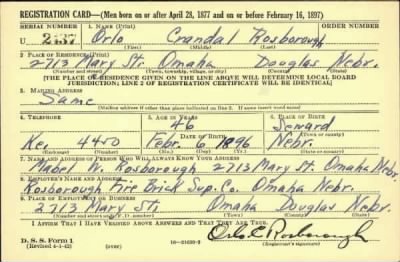 REGISTRATION CARD—(Men born on or after April 28, 1877 and on or before February 16, 1897)
SERIAL NUMBER 1. NAME (Print) ORDER NUMBER
U 2437 Orlo Crandal Rosborough
(First) (Middle) (Last)
2. PLACE OF RESIDENCE (Print)
2713 Mary St. Omaha Douglas Nebr.
(Number and street) (Town, township, village, or city) (County) (State)
[THE PLACE OF RESIDENCE GIVEN ON THE LINE ABOVE WILL DETERMINE LOCAL BOARD
JURISDICTION; LINE 2 OF REGISTRATION CERTIFICATE WILL BE IDENTICAL]
3. MAILING ADDRESS
Same
[Mailing address if other than place indicated on line 2. If same insert word same]
4. TELEPHONE 5. AGE IN YEARS 6. PLACE OF BIRTH
46 Seward
DATE OF BIRTH (Town or county)
Ke. 4450 Feb. 6 1896 Nebr.
(Exchange) (Number) (Mo.) (Day) (Yr.) (State or country)
7. NAME AND ADDRESS OF PERSON WHO WILL ALWAYS KNOW YOUR ADDRESS
Mabel W. Rosborough 2713 Mary St. Omaha Nebr.
8. EMPLOYER'S NAME AND ADDRESS
Rosborough Fire Brick Sup. Co. Omaha Nebr.
9. PLACE OF EMPLOYMENT OR BUSINESS
2713 Mary St. Omaha Douglas Nebr.
(Number and street or R. F. D. number) (Town) (County) (State)
I AFFIRM THAT I HAVE VERIFIED ABOVE ANSWERS AND THAT THEY ARE TRUE.
Orlo C Rosborough
D. S. S. Form 1
(Revised 4-1-42) (over) (Registrant's signature)